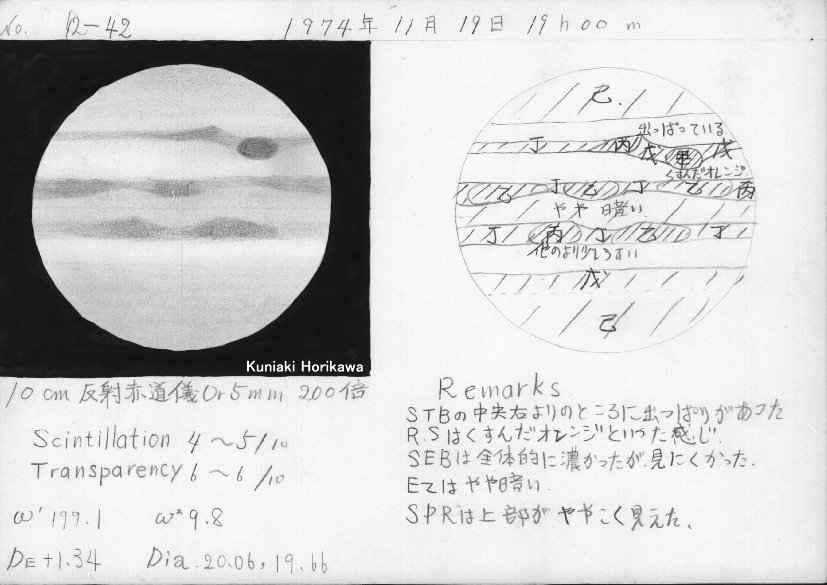 No. 12-42 1974年 11月 19日 19h 00m
己.
出っぱっている
丁 丙 戊 甲 戊
くすんだオレンジ
乙 丁 乙 丁 乙 丙
やや 暗い
丁 丙 丁 乙 丁
他のより少しうすい
戊
己
Kuniaki Horikawa
10cm 反射赤道儀 Or5mm 200倍
Scintillation 4〜5/10
Transparency 6〜6/10
ω¹ 199.1 ω² 9.8
DE +1.34 Dia. 20.06, 19.66
Remarks
STBの中央右よりのところに出っぱりがあった
R.Sはくすんだオレンジといった感じ.
SEBは全体的に濃かったが,見にくかった.
EZはやや暗い.
SPRは上部がややこく見えた.